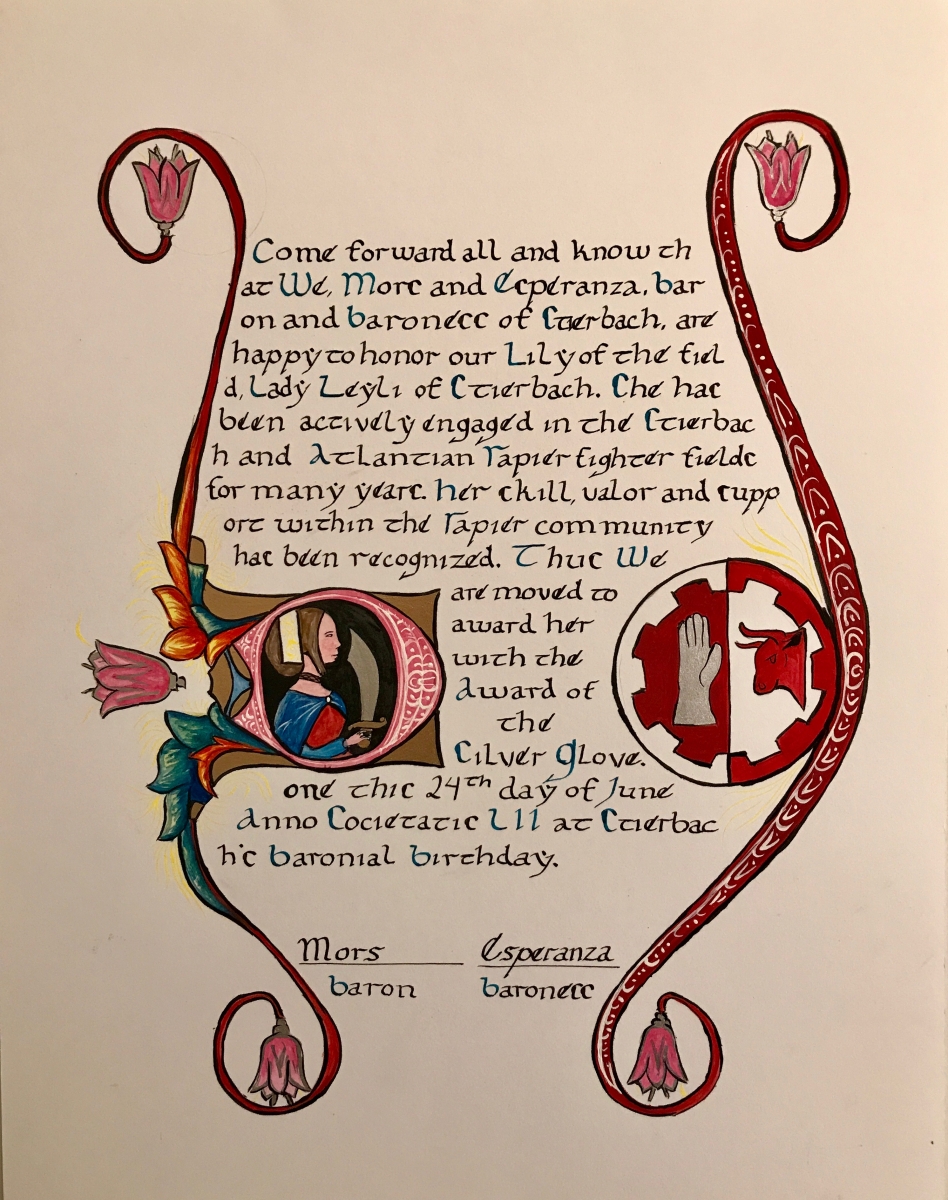 Come forward all and know th
at We, Mors and Esperanza, bar
on and baroness of Stierbach, are
happy to honor our Lily of the fiel
d, Lady Leyli of Stierbach. She has
been actively engaged in the Stierbac
h and Atlantian rapier fighter fields
for many years. her skill, valor and supp
ort within the rapier community
has been recognized. Thus We
are moved to
award her
with the
Award of
the
Silver Glove.
Done this 24th day of June
Anno Societatis LII at Stierbac
h's baronial birthday.
Mors Esperanza
baron baroness